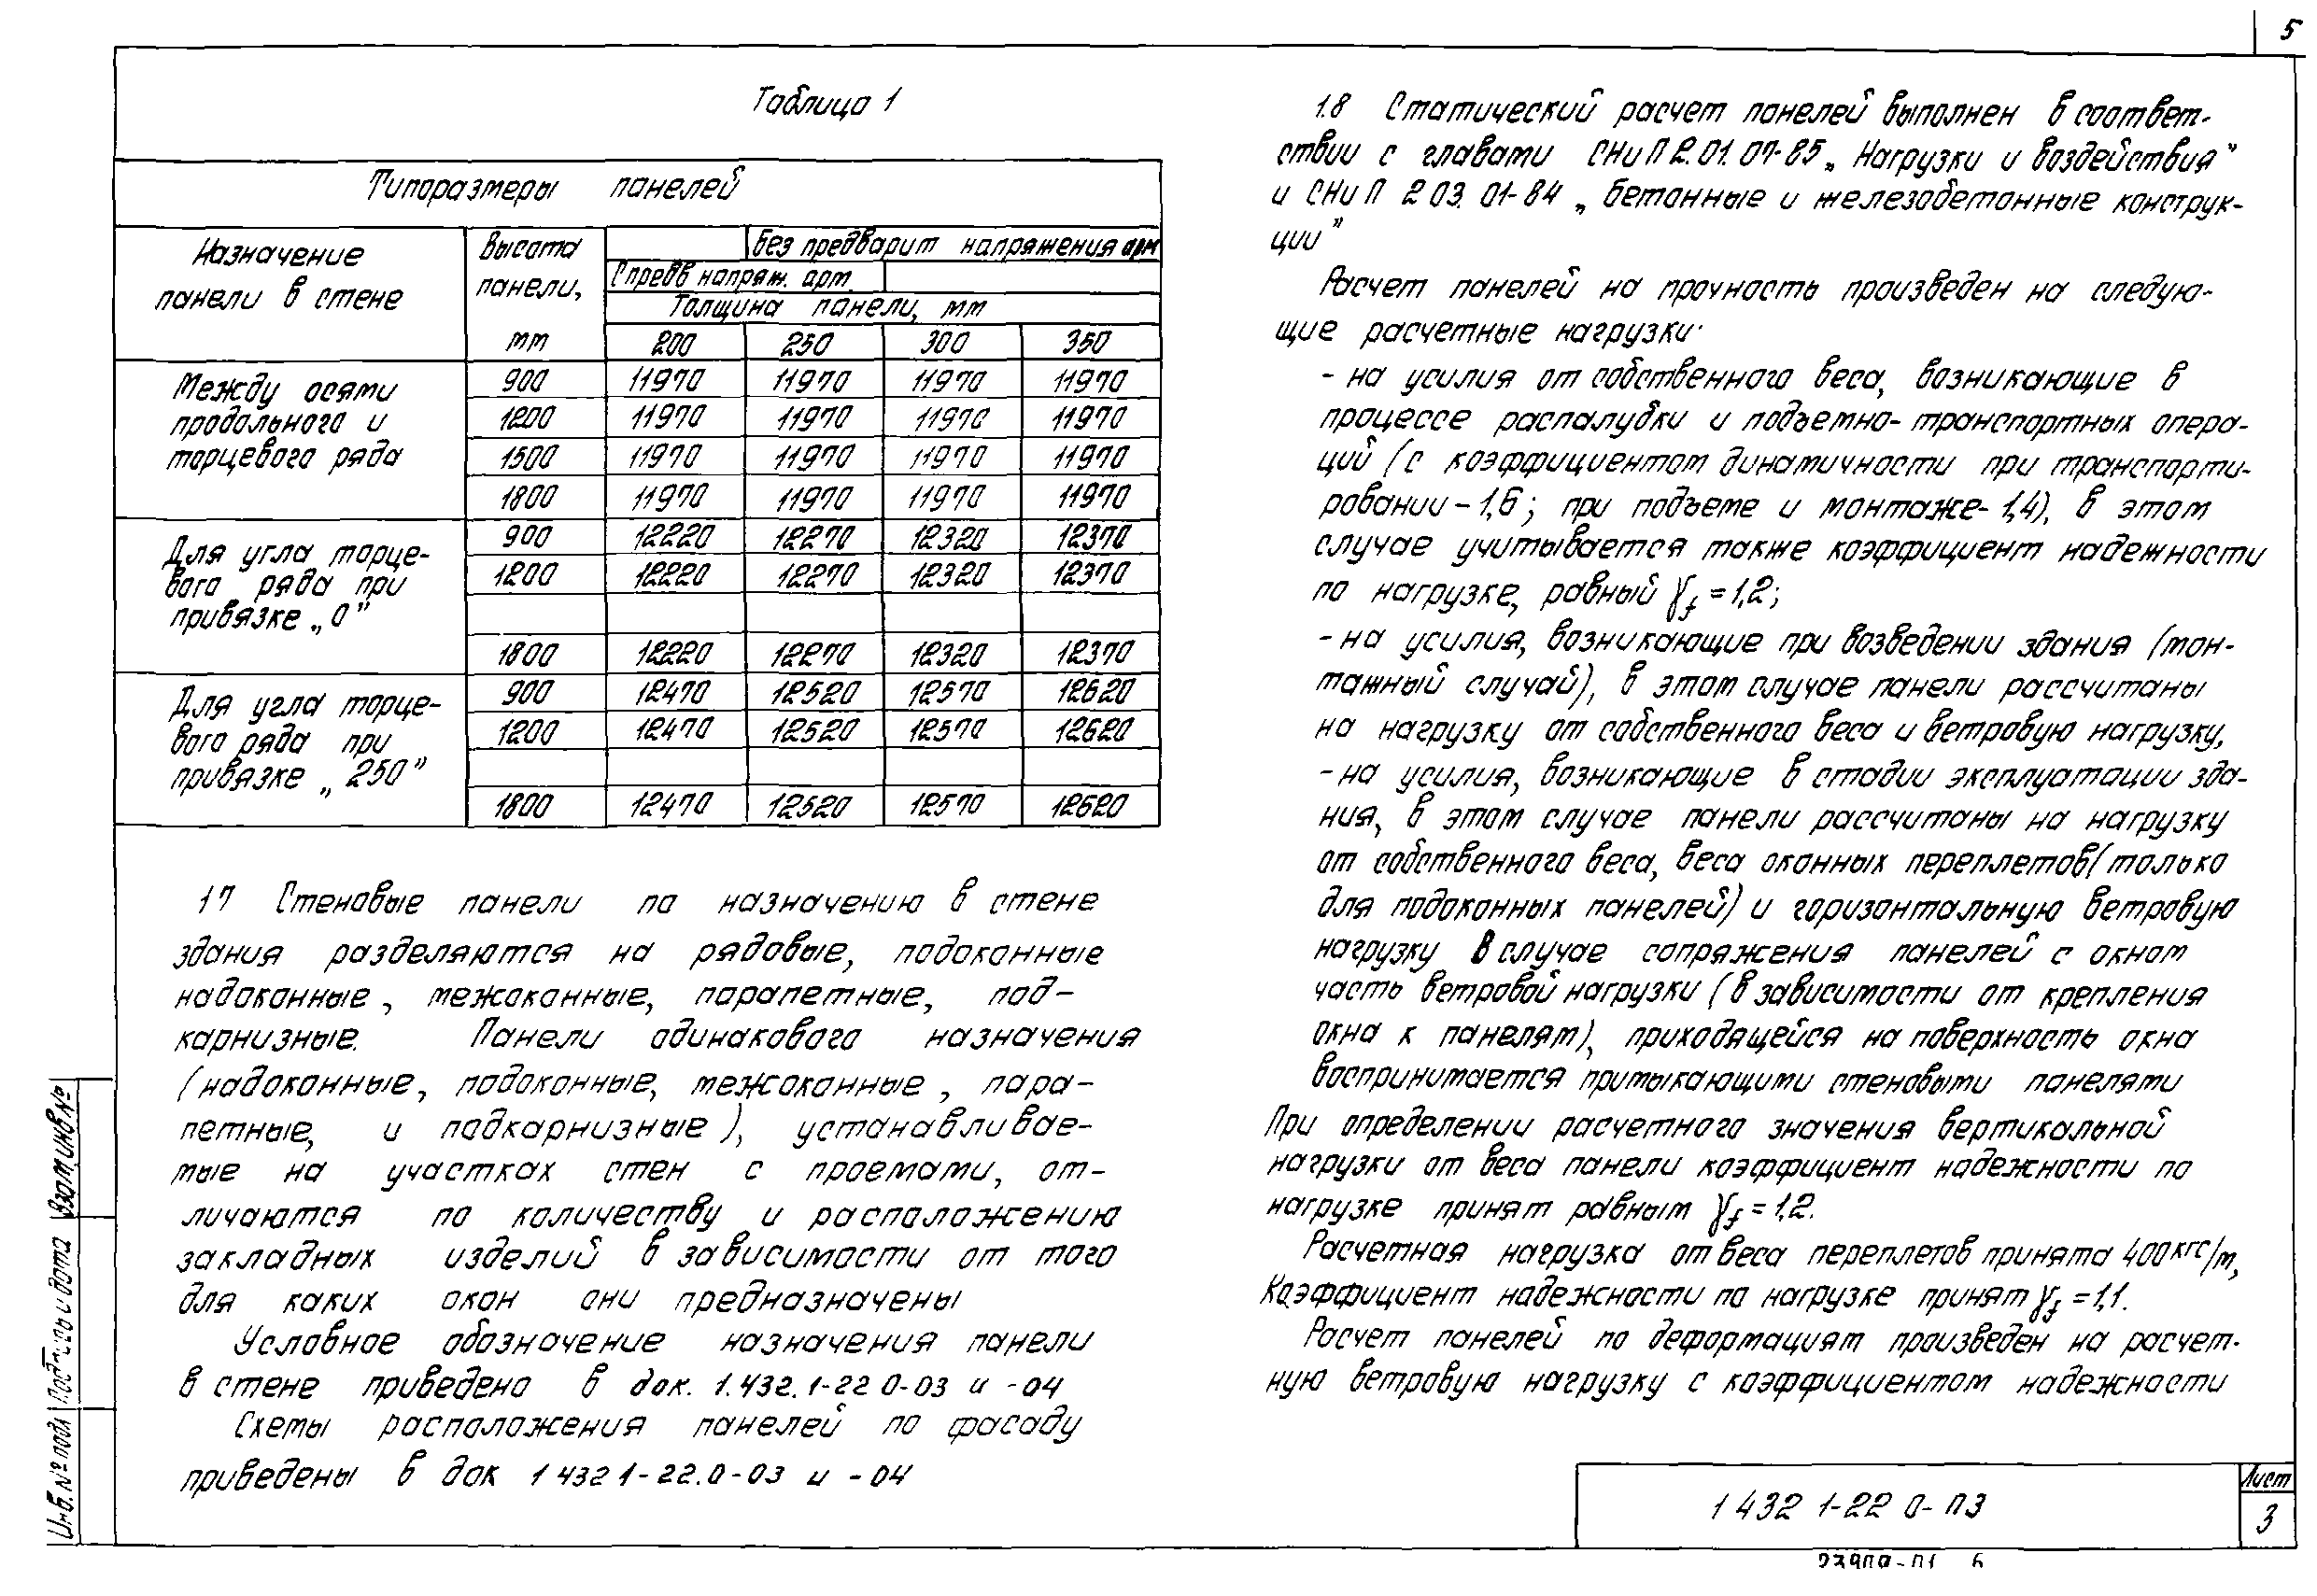 5
Таблица 1
Типоразмеры панелей
Назначение панели в стене
Высота панели, мм
Без предварит напряжения арм
С предв напряж. арм
Толщина панели, мм
200 250 300 350
Между осями продольного и торцевого ряда
900 11970 11970 11970 11970
1200 11970 11970 11970 11970
1500 11970 11970 11970 11970
1800 11970 11970 11970 11970
Для угла торцевого ряда при привязке „0"
900 12220 12270 12320 12370
1200 12220 12270 12320 12370
1800 12220 12270 12320 12370
Для угла торцевого ряда при привязке „250"
900 12470 12520 12570 12620
1200 12470 12520 12570 12620
1800 12470 12520 12570 12620
1 7 Стеновые панели по назначению в стене
здания разделяются на рядовые, подоконные
надоконные, межоконные, парапетные, под-
карнизные. Панели одинакового назначения
(надоконные, подоконные, межоконные, пара-
петные, и подкарнизные), устанавливае-
мые на участках стен с проемами, от-
личаются по количеству и расположению
закладных изделий в зависимости от того
для каких окон они предназначены
Условное обозначение назначения панели
в стене приведено в док. 1.432.1-22 0-03 и -04
Схемы расположения панелей по фасаду
приведены в док 1 432 1-22.0-03 и -04
1.8 Статический расчет панелей выполнен в соответ-
ствии с главами СНиП 2.01.07-85 „Нагрузки и воздействия"
и СНиП 2 03.01-84 „Бетонные и железобетонные конструк-
ции"
Расчет панелей на прочность произведен на следую-
щие расчетные нагрузки.
- на усилия от собственного веса, возникающие в
процессе распалубки и подъемно-транспортных опера-
ций (с коэффициентом динамичности при транспорти-
ровании - 1,6; при подъеме и монтаже - 1,4), в этом
случае учитывается также коэффициент надежности
по нагрузке, равный γf = 1,2;
- на усилия, возникающие при возведении здания (мон-
тажный случай), в этом случае панели рассчитаны
на нагрузку от собственного веса и ветровую нагрузку,
- на усилия, возникающие в стадии эксплуатации зда-
ния, в этом случае панели рассчитаны на нагрузку
от собственного веса, веса оконных переплетов (только
для подоконных панелей) и горизонтальную ветровую
нагрузку В случае сопряжения панелей с окном
часть ветровой нагрузки (в зависимости от крепления
окна к панелям), приходящейся на поверхность окна
воспринимается примыкающими стеновыми панелями
При определении расчетного значения вертикальной
нагрузки от веса панели коэффициент надежности по
нагрузке принят равным γf = 1,2.
Расчетная нагрузка от веса переплетов принята 400 кгс/м,
Коэффициент надежности по нагрузке принят γf = 1,1.
Расчет панелей по деформациям произведен на расчет-
ную ветровую нагрузку с коэффициентом надежности
Взам инв №
Подпись и дата
Инв. № подл
1 432 1-22 0-ПЗ
Лист
3
23909-01 6